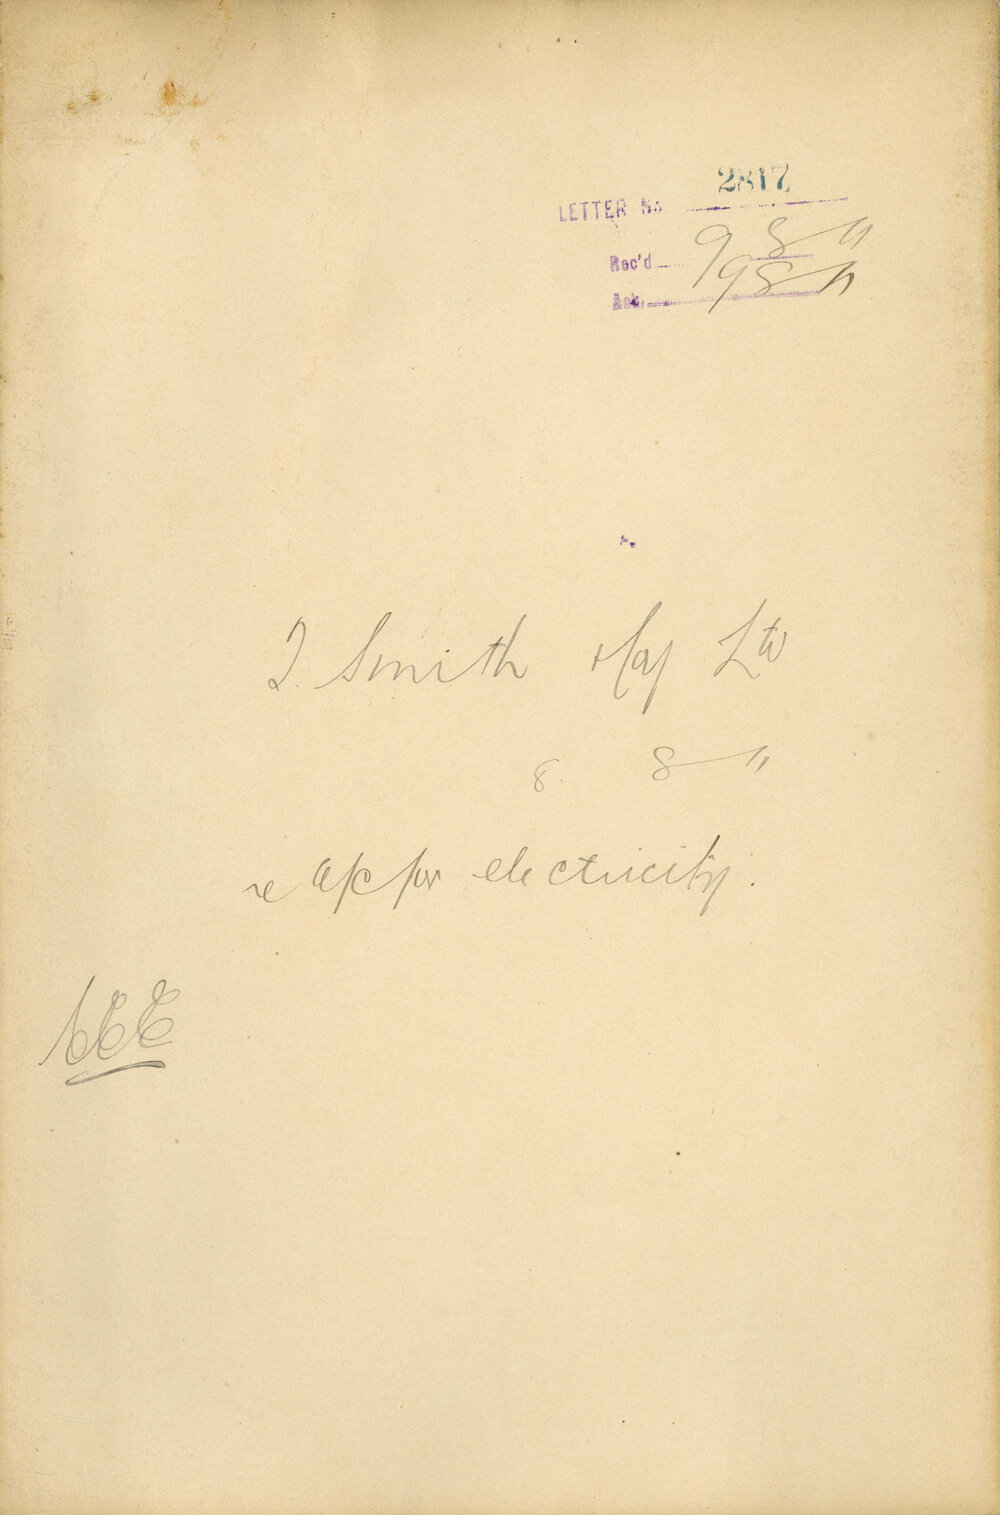 LETTER No. 2817
Rec'd 9 8 11
Ack. 9 8 11
T. Smith & Coy Ltd
8. 8 11
re a/c for electricity.